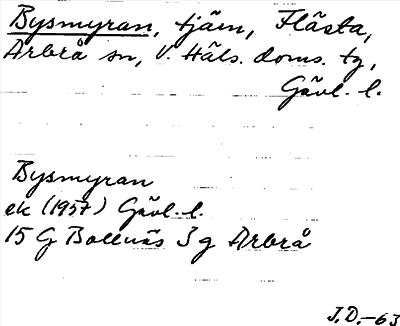 Bysmyran, tjärn, Flästa,
Arbrå sn, V. Häls. doms. tg,
Gävl. l.
Bysmyran
ek (1957) Gävl. l.
15 G Bollnäs 3 g Arbrå
J.D.-63